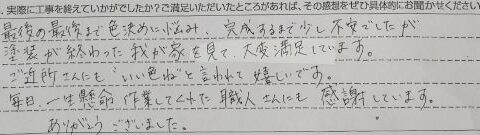 .実際に工事を終えていかがでしたか？ご満足いただいたところがあれば、その感想をぜひ具体的にお聞かせください
最後の最後まで色決めに悩み、完成するまで少し不安でしたが
塗装が終わった我が家を見て、大変満足しています。
ご近所さんにも"いい色ね"と言われて嬉しいです。
毎日、一生懸命作業してくれた職人さんにも感謝しています。
ありがとうございました。